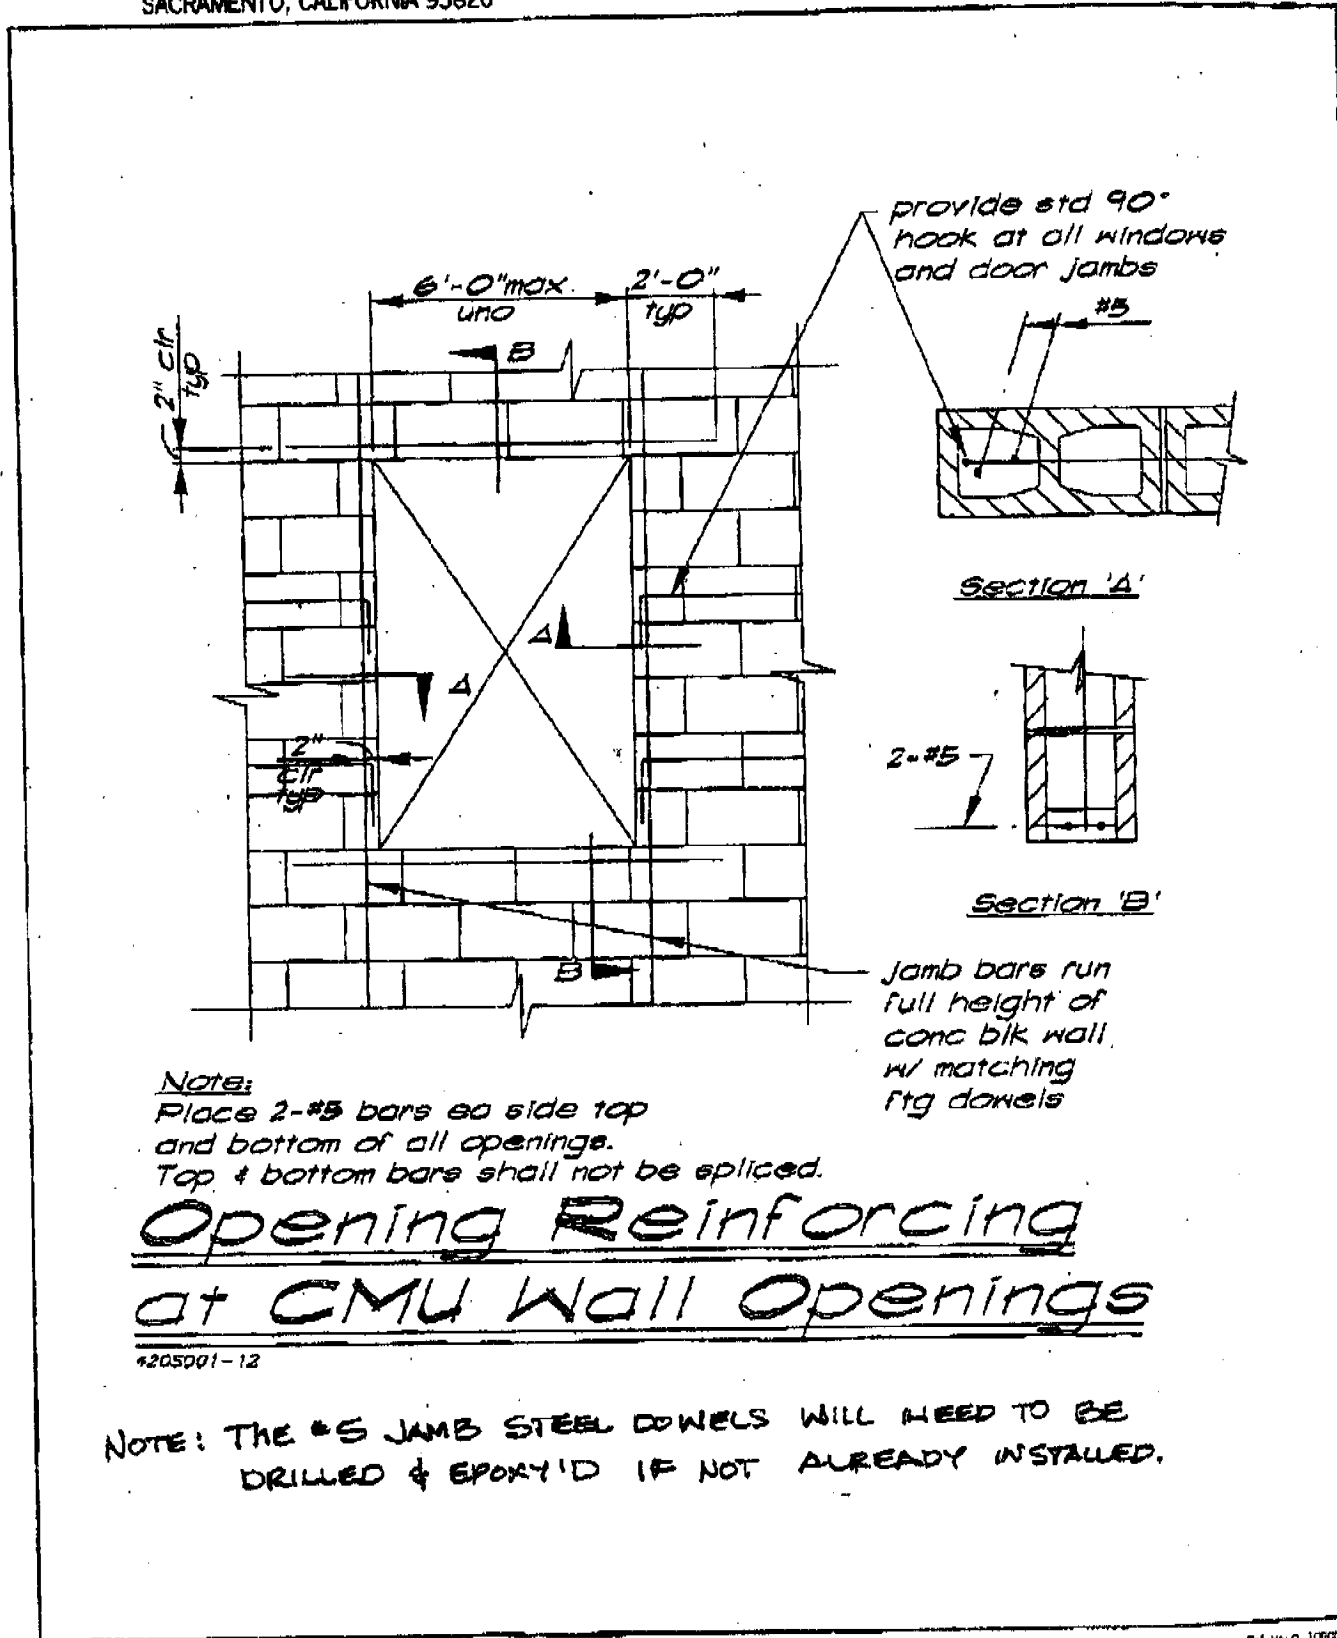 SACRAMENTO, CALIFORNIA 95820
provide std 90°
hook at all windows
and door jambs
6'-0" max
uno
2'-0"
typ
#5
B
2" clr
typ
Section 'A'
A
A
2"
clr
typ
2-#5
Section 'B'
B
jamb bars run
full height of
conc blk wall
w/ matching
ftg dowels
Note:
Place 2-#5 bars ea side top
and bottom of all openings.
Top & bottom bars shall not be spliced.
Opening Reinforcing
at CMU Wall Openings
205001-12
NOTE: THE #5 JAMB STEEL DOWELS WILL NEED TO BE
DRILLED & EPOXY'D IF NOT ALREADY INSTALLED.